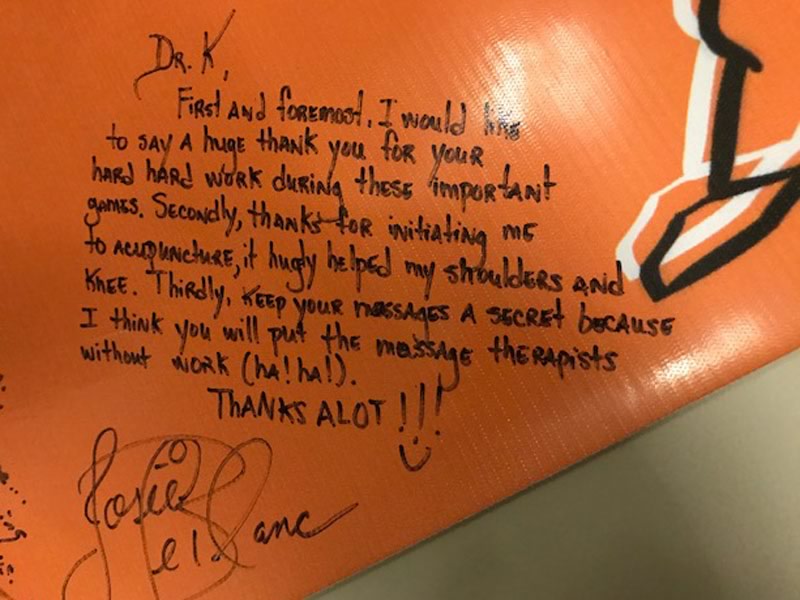 Dr. K,
First and foremost, I would like
to say a huge thank you for your
hard hard work during these important
games. Secondly, thanks for initiating me
to acupuncture, it hugly helped my shoulders and
knee. Thirdly, keep your massages a secret because
I think you will put the massage therapists
without work (ha! ha!).
Thanks alot !!!